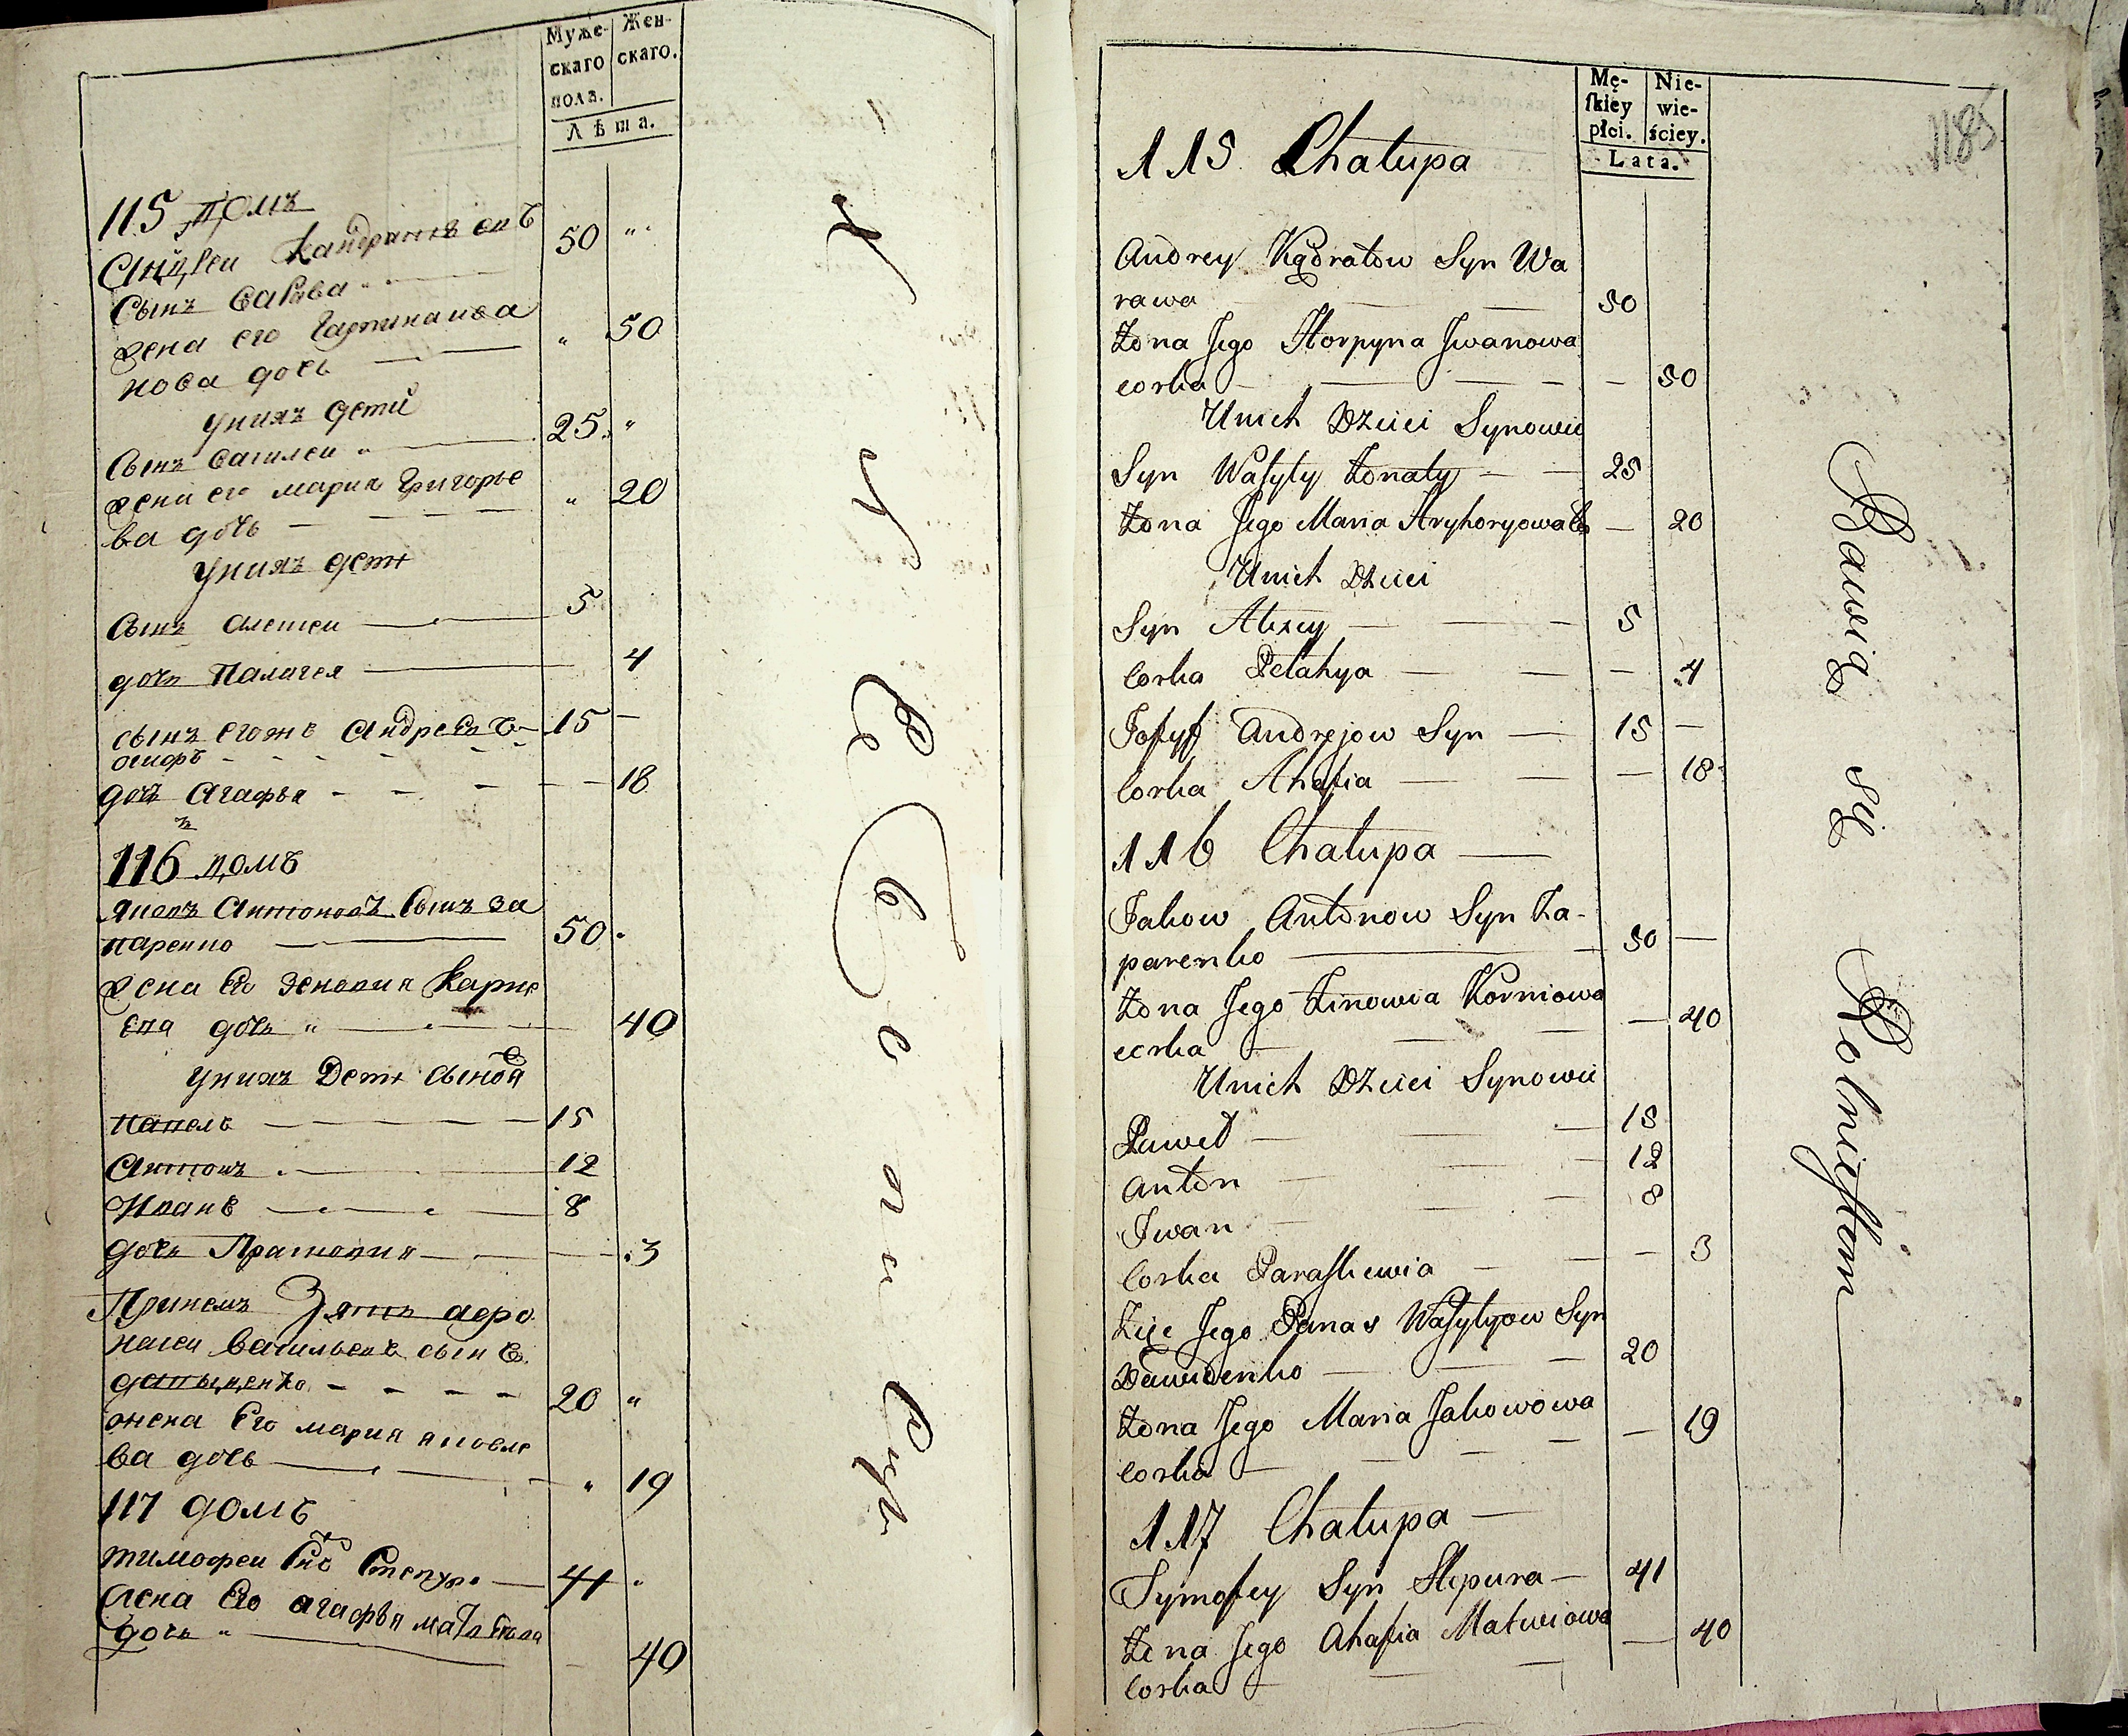 Муже-
скаго
полъ.
Жен-
скаго.
Лѣта.
115 домъ
Андреи Кандратовъ
сынъ Варава
50 "
жена его Гарпина ива
нова дочь — " 50
униxъ дети
Сынъ василеи " — 25. "
жена его мария Григорье
ва дочь — " 20
униxъ дети
Сынъ алексеи — 5
дочь Палагея — 4
сынъ егожъ Андреевъ — 15 —
осифъ
дочь Агафья — 18
116 домъ
Яковъ Антоновъ Сынъ за
паренко — 50
жена Его Зеновия Карне
ева дочь " — 40
униxъ Дети сыновя
Павелъ — 15
Антонъ — 12
Иванъ — 8
дочь Прасковия — 3
Приемъ Зять афо
насеи Васильевъ сынъ
давыденко — 20 "
жена Его мария яковле
ва дочь — " 19
117 домъ
тимофеи Степура — 41
жена Его агафья матвеева
дочь " — 40
Мę-
ſkiey
płci.
Nie-
wie-
ściey.
Lata.
1185
115 Chałupa
Andrey Kądratow Syn Wa
rawa — 50
Żona Jego Horpyna Jwanowa
corka — 50
Unich Dzieci Synowie
Syn Waſyły Żonaty — 25
Żona Jego Maria Hryhoryowa — 20
Unich Dzieci
Syn Alexey — 5
Corka Pełahya — 4
Joſyf Andrejow Syn — 15 —
Corka Ahafia — 18
116 Chałupa —
Jakow Antonow Syn Za-
parenko — 50 —
Żona Jego Zinowia Korniowa
corka — 40
Unich Dzieci Synowie
Paweł — 15
Anton — 12
Jwan — 8
Corka Paraſkiewia — 3
Zięc Jego Panas Waſylyow Syn
Dawidenko — 20
Żona Jego Maria Jakowowa
Corka — 19
117 Chałupa —
Tymofey Syn Stepura — 41
Żona Jego Ahafia Matwiowa
Corka — 40
Bawią się Rolnictwem